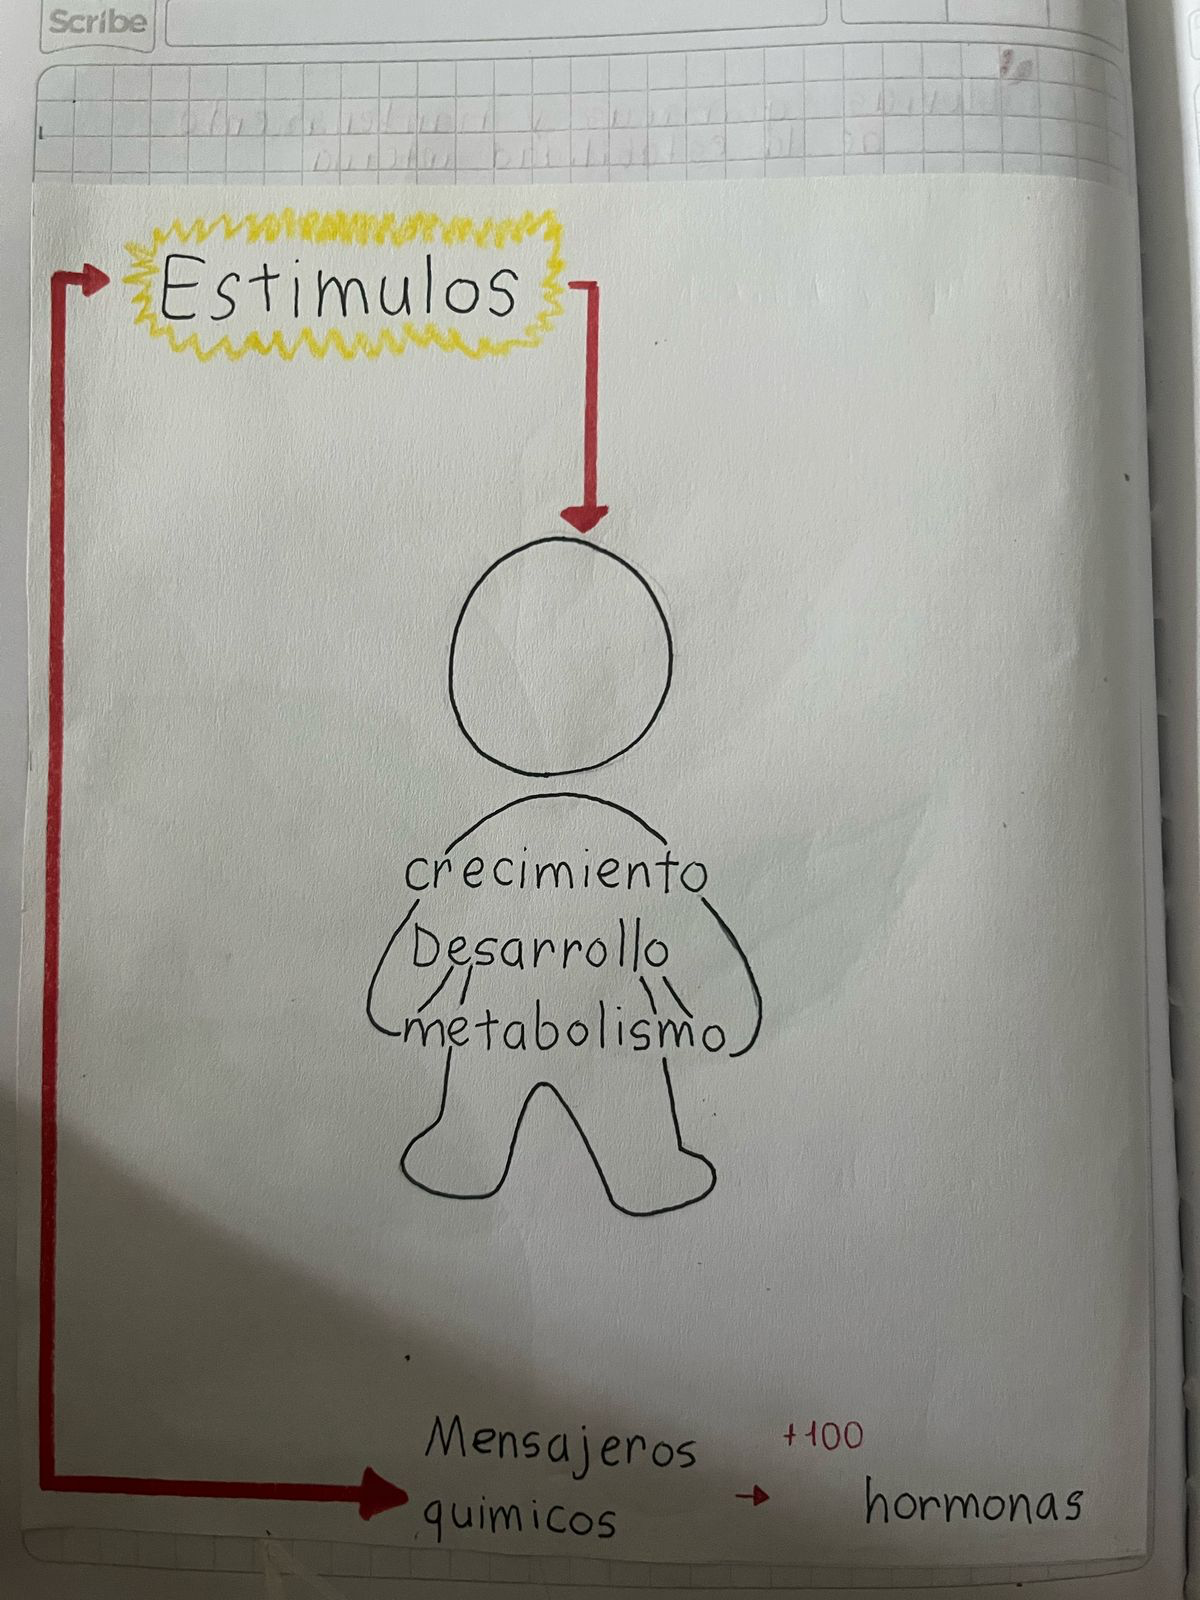 Scribe
Estimulos
crecimiento
Desarrollo
metabolismo
Mensajeros
quimicos
→
+100
hormonas